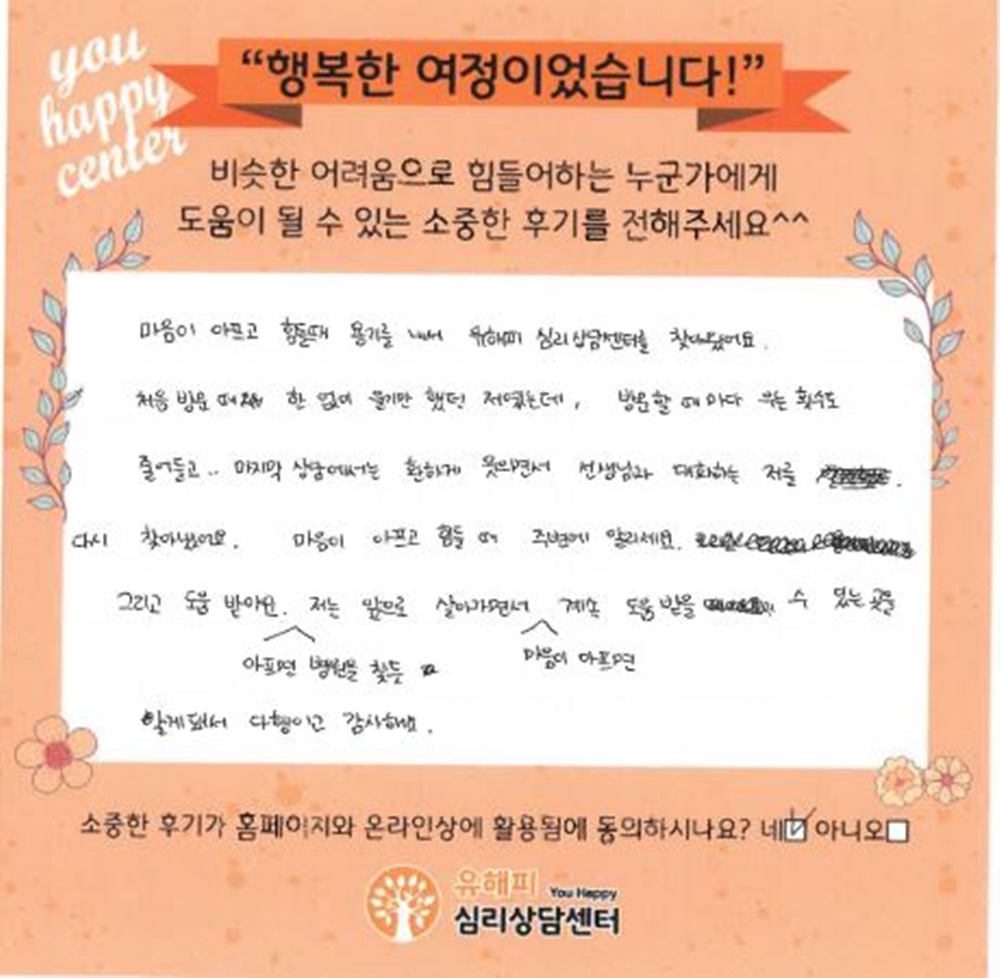 you
happy
center
“행복한 여정이었습니다!”
비슷한 어려움으로 힘들어하는 누군가에게
도움이 될 수 있는 소중한 후기를 전해주세요^^
마음이 아프고 힘들때 용기를 내서 유해피 심리상담센터를 찾아왔어요.
처음 방문 때 한 없이 울기만 했던 저였는데, 방문할 때 마다 우는 횟수도
줄어들고.. 마지막 상담에서는 환하게 웃으면서 선생님과 대화하는 저를
다시 찾아냈어요. 마음이 아프고 힘들 때 주변에 알리세요.
그리고 도움 받아요. 저는 앞으로 살아가면서 계속 도움 받을 수 있는 곳을
아프면 병원을 찾듯 마음이 아프면
알게돼서 다행이고 감사해요.
소중한 후기가 홈페이지와 온라인상에 활용됨에 동의하시나요? 네☑ 아니오□
유해피 You Happy
심리상담센터